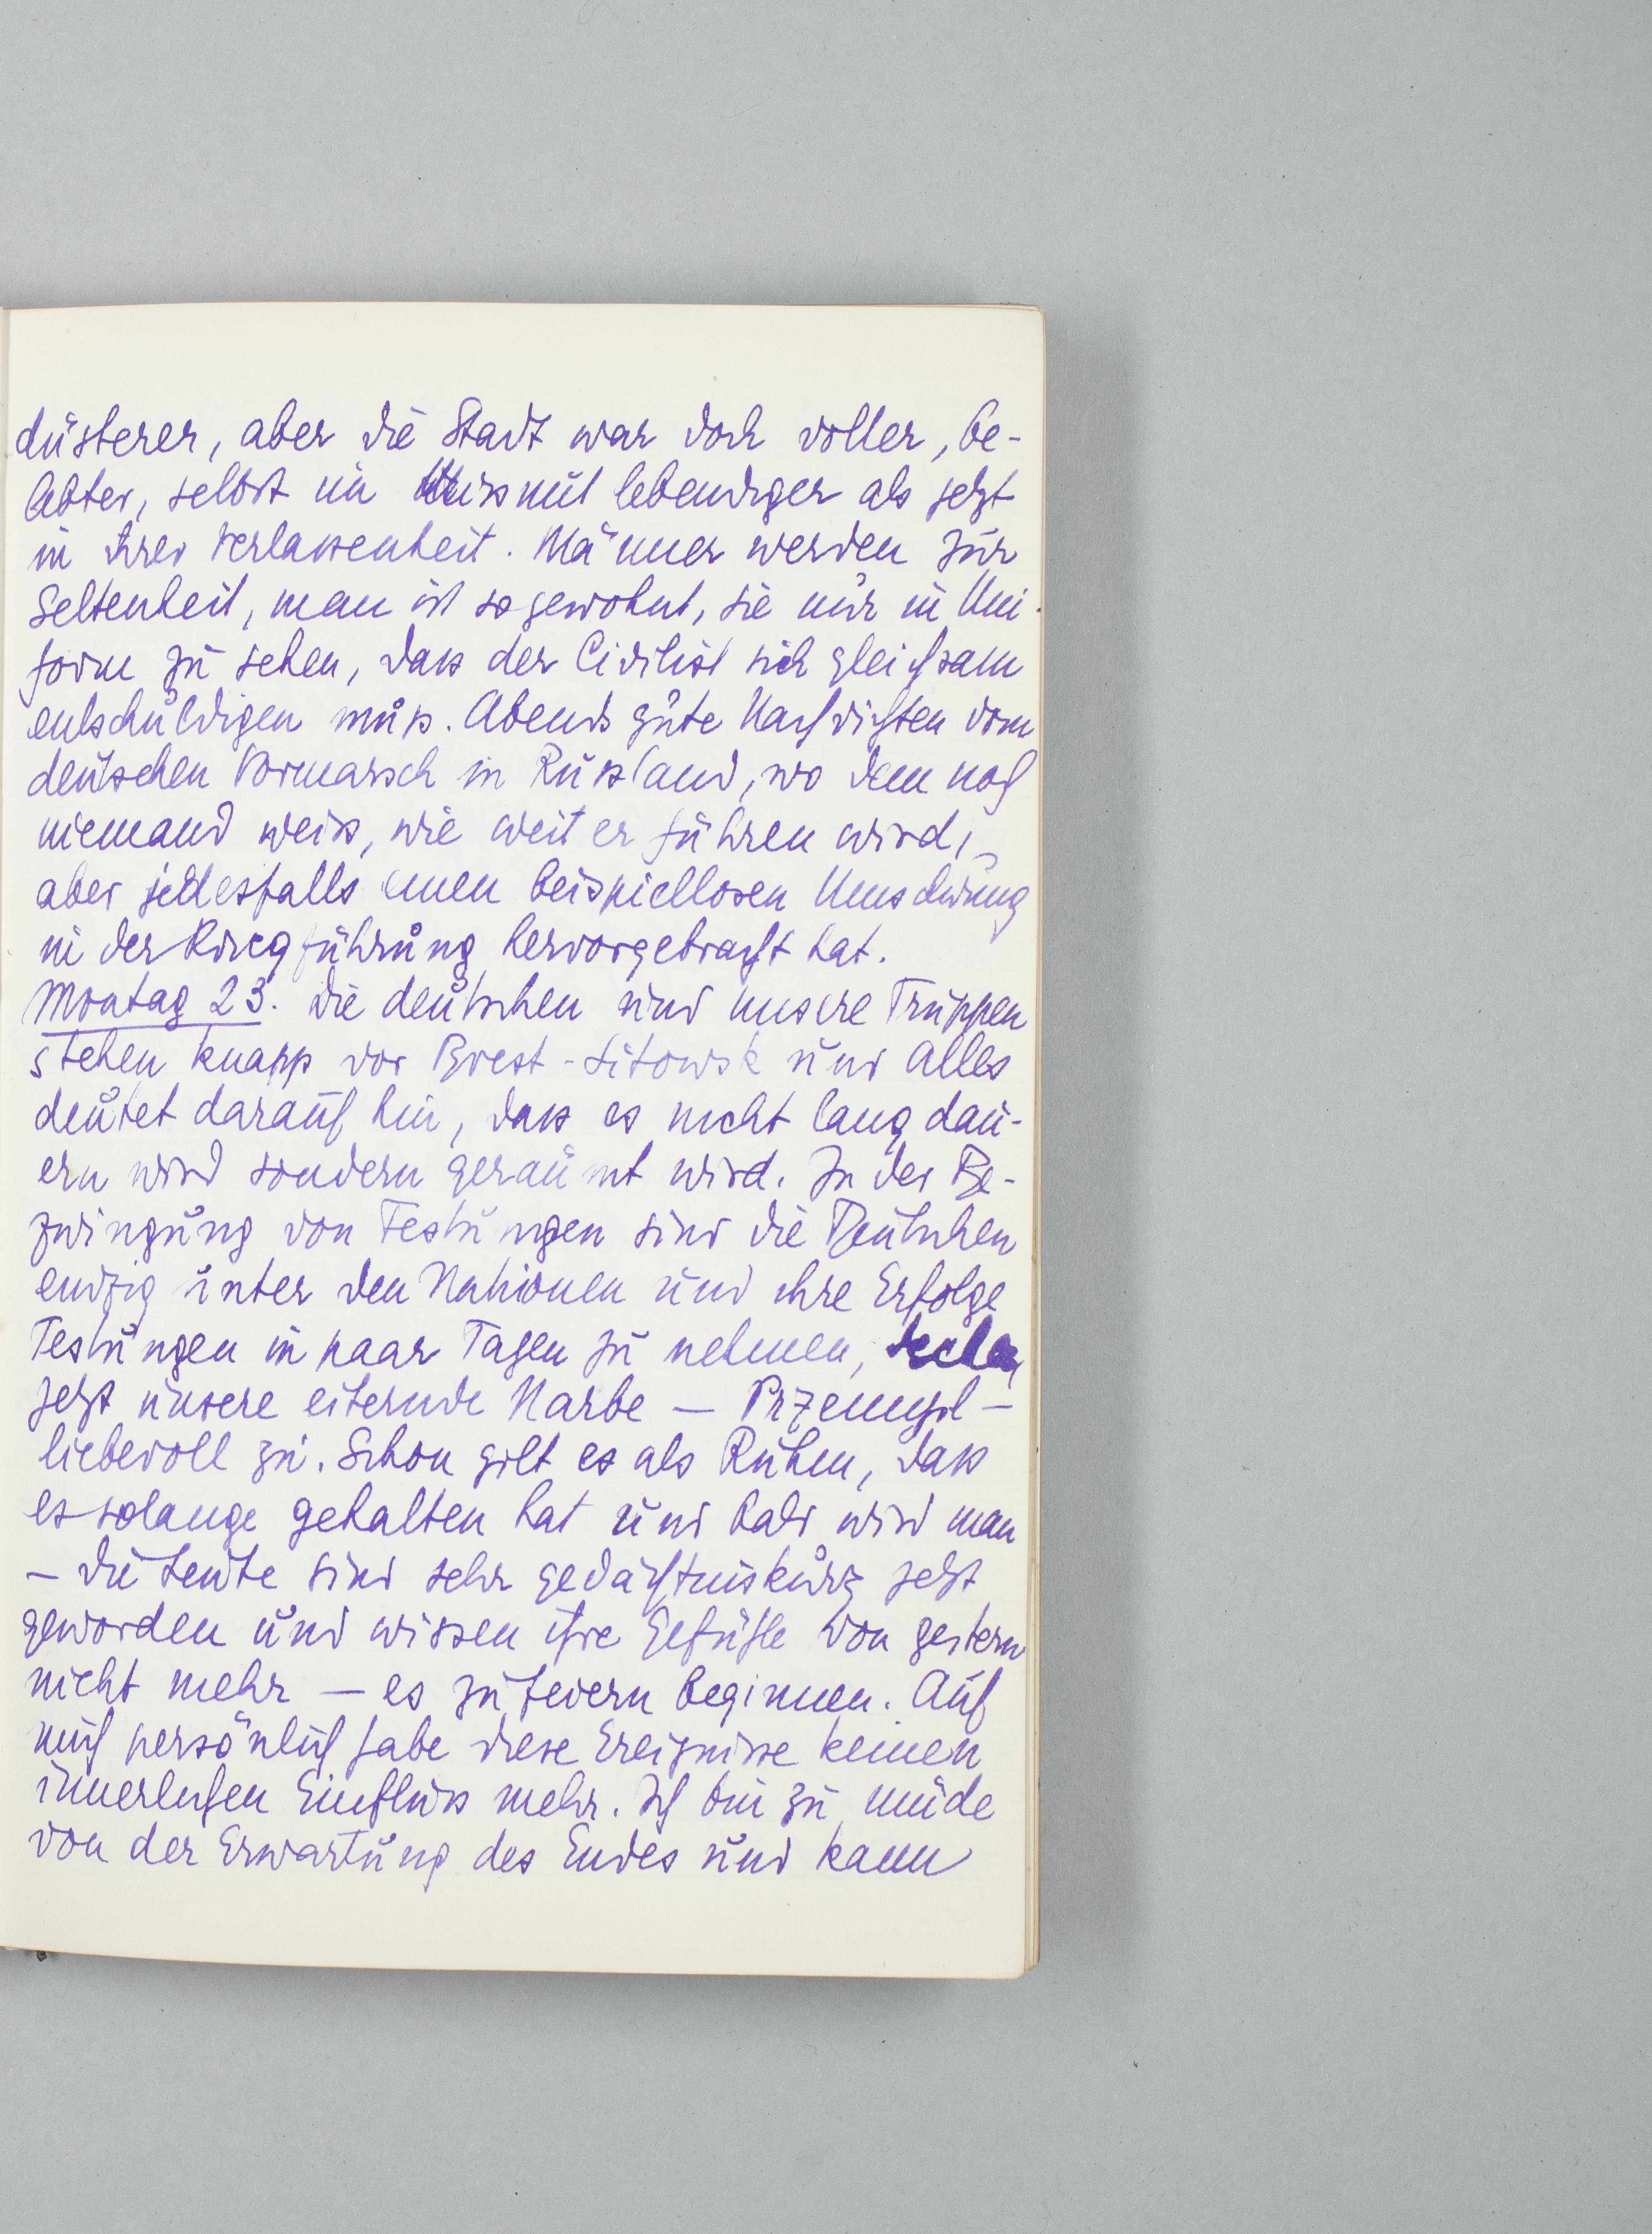 düsterer, aber die Stadt war doch voller, be-
lebter, selbst im Missmut lebendiger als jetzt
in ihrer Verlassenheit. Männer werden zur
Seltenheit, man ist so gewohnt, sie nur in Uni-
form zu sehen, dass der Civilist sich gleichsam
entschuldigen muss. Abends gute Nachrichten vom
deutschen Vormarsch in Russland, von dem noch
niemand weiss, wie weit er führen wird,
aber jedesfalls einen beispiellosen Umschwung
in der Kriegführung hervorgebracht hat.
Montag 23. Die deutschen und unsere Truppen
stehen knapp vor Brest-Litowsk und alles
deutet darauf hin, dass es nicht lang dau-
ern wird sondern geräumt wird. In der Be-
zwingung von Festungen sind die Deutschen
einzig unter den Nationen und ihre Erfolge
Festungen in paar Tagen zu nehmen,
jetzt unsere eiternde Narbe – Przemysl –
liebevoll zu. Schon gilt es als Ruhm, dass
es solange gehalten hat und bald wird man
– die Leute sind sehr gedächtniskurz jetzt
geworden und wissen ihre Gefühle von gestern
nicht mehr – es zu feiern beginnen. Auf
mich persönlich habe diese Ereignisse keinen
innerlichen Einfluss mehr. Ich bin zu müde
von der Erwartung des Endes und kann